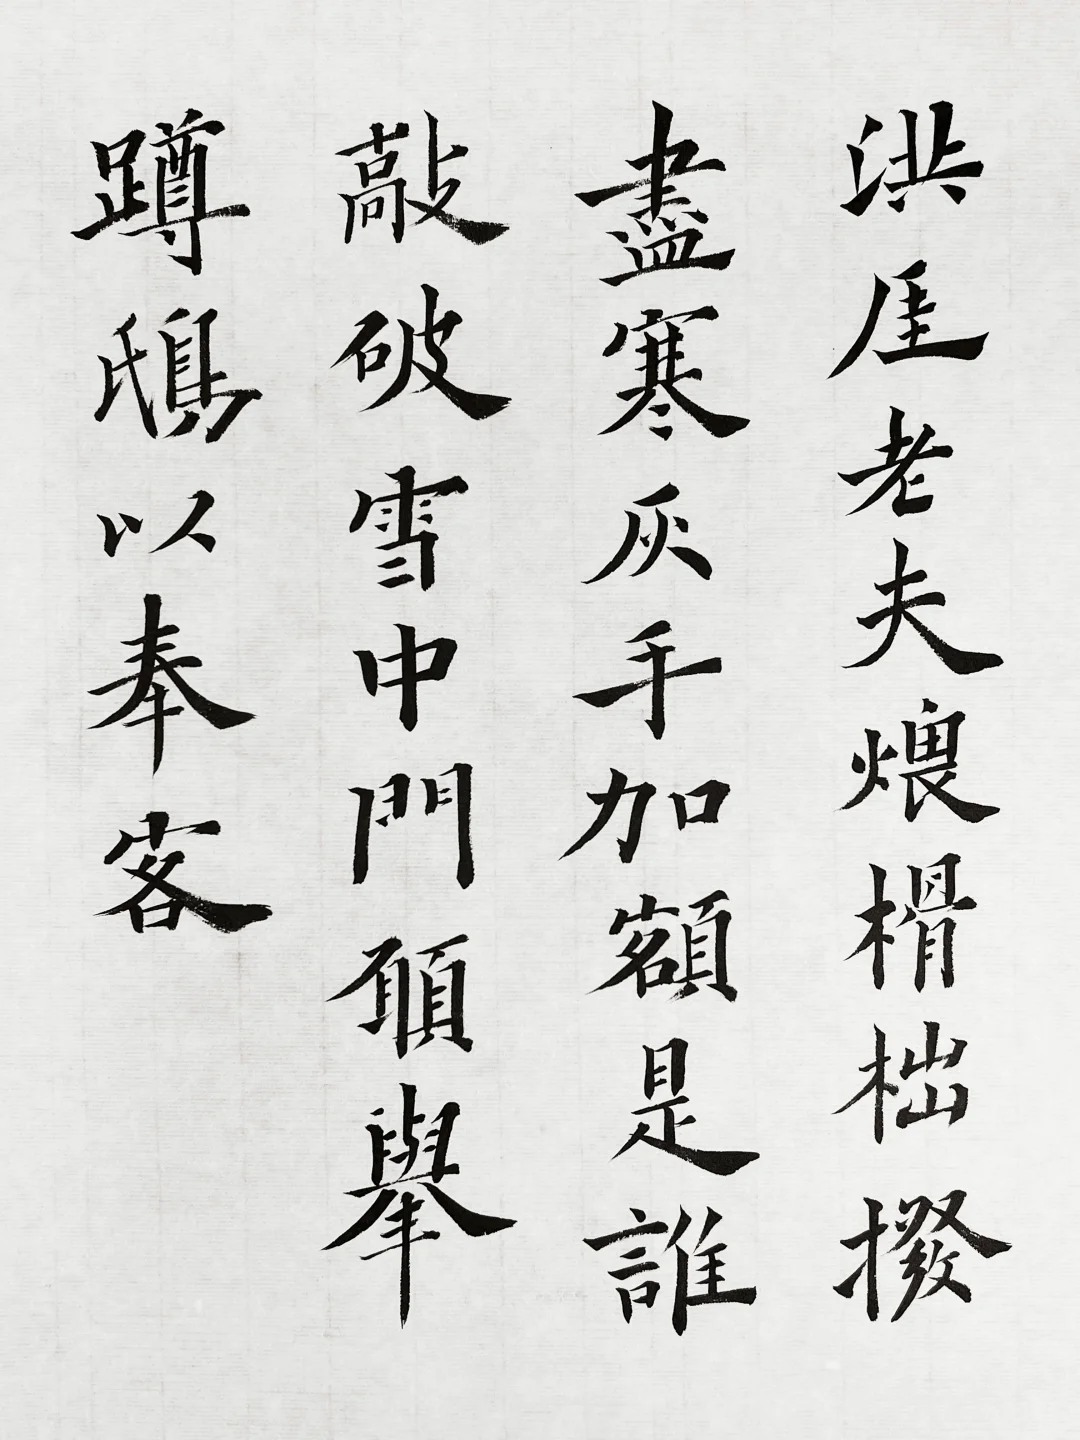 洪厓老夫煨榾柮撥
盡寒灰手加額是誰
敲破雪中門願舉
蹲鴟以奉客